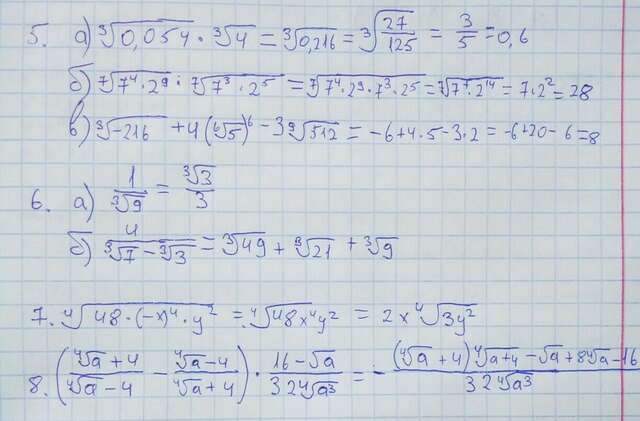 5. а) ∛0,054 · ∛4 = ∛0,216 = ∛(27/125) = 3/5 = 0,6
б) ⁷√(7⁴·2⁹) · ⁷√(7³·2⁵) = ⁷√(7⁴·2⁹·7³·2⁵) = ⁷√(7⁷·2¹⁴) = 7·2² = 28
в) ∛-216 + 4(⁶√5)⁶ - 3⁹√512 = -6+4·5-3·2 = -6+20-6=8
6. а) 1/∛9 = ∛3/3
б) 4/(∛7 - ∛3) = ∛49 + ∛21 + ∛9
7. ⁴√(48·(-x)⁴·y²) = ⁴√(48x⁴y²) = 2x⁴√(3y²)
8. ((⁴√a+4)/(⁴√a-4) - (⁴√a-4)/(⁴√a+4)) · (16-√a)/(32⁴√a³) = -((⁴√a+4)⁴√a+4-√a+8⁴√a-16)/(32⁴√a³)